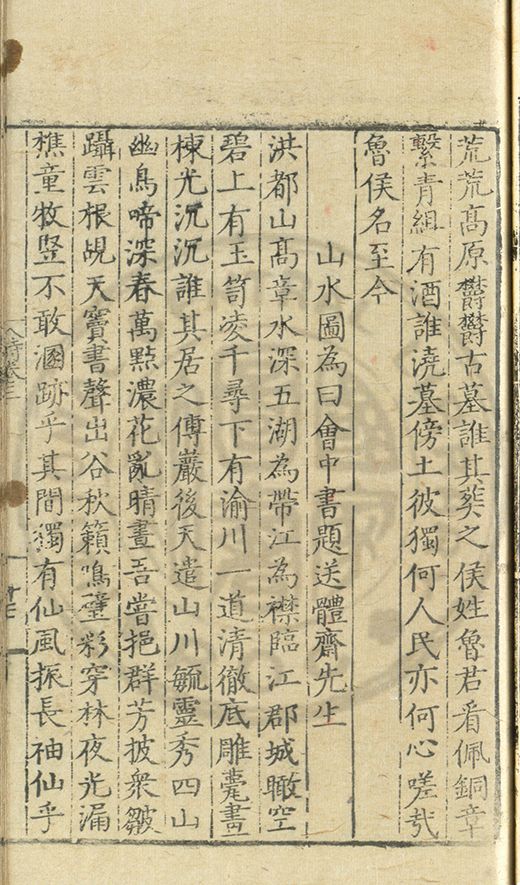 荒荒高原欝欝古墓誰其葬之侯姓魯君看佩銅章
繫青組有酒誰澆墓傍土彼獨何人民亦何心嗟哉
魯侯名至今
山水圖為曰會中書題送體齋先生
洪都山高章水深五湖為帶江為襟臨江郡城瞰空
碧上有玉笥凌千尋下有渝川一道清徹底雕甍畫
棟光沉沉誰其居之傅巖後天遣山川毓靈秀四山
幽鳥啼深春萬點濃花亂晴晝吾嘗挹群芳披衆皺
躡雲根覘天竇書聲出谷秋籟鳴璧彩穿林夜光漏
樵童牧竪不敢溷跡乎其間獨有仙風振長袖仙乎
詩卷三
十七